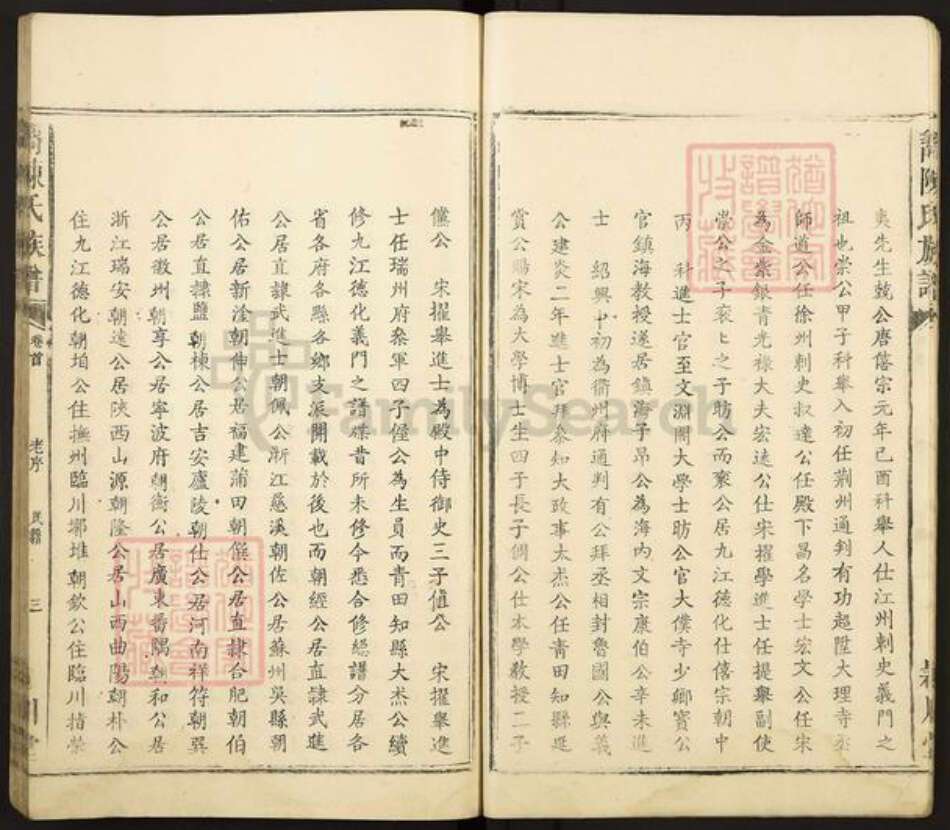 夷先生兢公唐僖宗元年己酉科舉人仕江州刺史義門之
祖也崇公甲子科舉入初任荆州通判有功超陞大理寺丞
師道公任徐州刺史叔達公任殿下昌名學士宏文公任宋
為金紫銀青光祿大夫宏遠公仕宋擢學進士任提舉副使
當公之子袞匕之子昉公而褒公居九江德化仕僖宗朝中
丙 科進士官至文淵閣大學士昉公官大僕寺少卿寳公
官鎮海教授遂居鎮海子昂公為海內文宗康伯公辛未進
士 紹興中初為衢州府通判有公拜丞相封魯國公與義
公建炎二年進士官拜叅知大政事太杰公任青田知縣逐
賞公賜宋為大學博士生四子長子倜公仕本學教授二子
儻公 宋擢舉進士為殿中侍御史三子值公 宋擢舉進
士任瑞州府叅軍四子偓公為生員而青田知縣大杰公續
修九江德化義門之譜牒昔所未修今悉合修總譜分居各
省各府各縣各鄉支派開載於後也而朝經公居直隷武進
公居直隷武進士朝佩公浙江慈溪朝佐公居蘇州吳縣朝
佑公居新淦朝伸公居福建莆田朝僎公居直隷合肥朝伯
公居直隷鹽朝棟公居吉安廬陵朝仕公居河南祥符朝巽
公居徽州朝享公居寧波府朝衡公居廣東番隅朝和公居
浙江瑞安朝遠公居陜西山源朝隆公居山西曲陽朝朴公
住九江德化朝垍公住撫州臨川鄂堆朝欽公住臨川楷榮
陳氏族譜
卷首
老序
三
FamilySearch